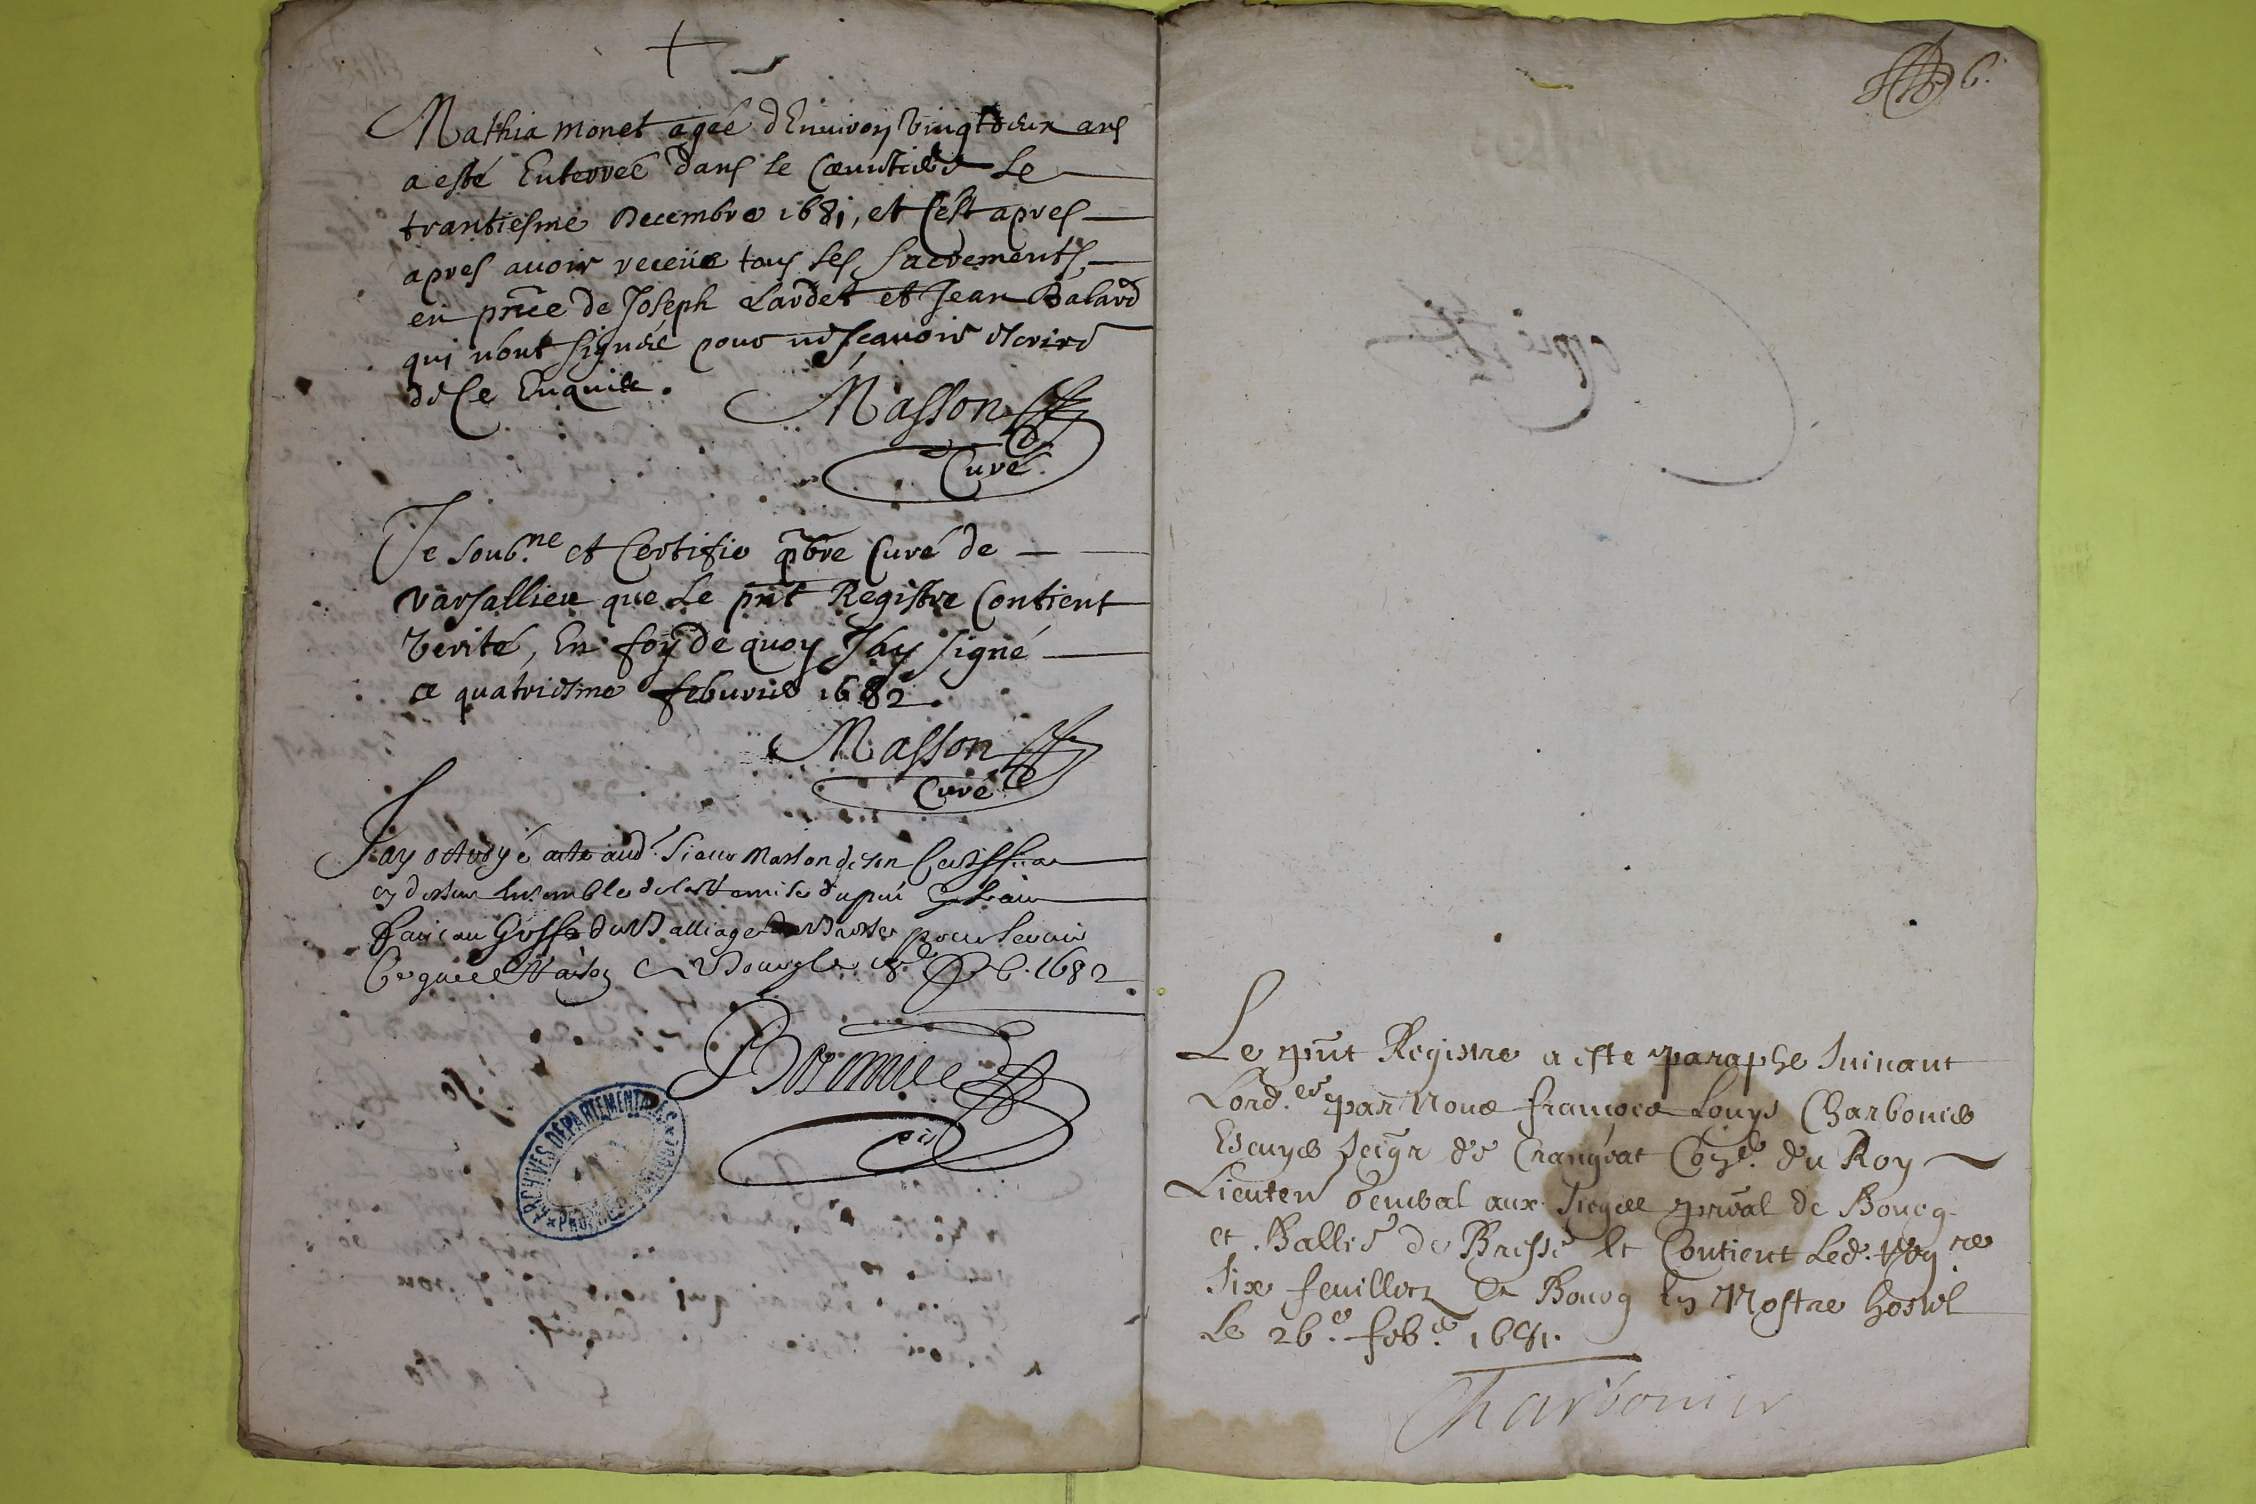 Mathia monet agée d'Enuiron vingt deux ans
a esté Enterreé dans le Cœmitiere Le
trantiesme Decembre 1681, et c'est apres
apres auoir receüe tous les sacrements,
en pnce de Joseph Lardet et Jean Balard
qui n'ont signée pour ne scauoir escrire
de ce Enquis.
Masson
Curé
Je soub.ne et Certifie pbre Curé de
varsallieu que Le pnt Registre Contient
verité, En foy de quoy J'ay signé
ce quatriesme feburier 1682.
Masson
Curé
J'ay octroyé acte aud. Sieur Masson de son
cy dessus Ensemble de la Remise du pnt
faict au Greffe du Balliage de Bresse pour seruir
1682
ARCHIVES DEPARTEMENTALES
6.
Le pnt Registre a este paraphe suiuant
Lord.ce par Nous françois Louys Charbonier
Escuyer seigr de Crangeat Coner. du Roy
Lieuten General aux sieges pnal de Bourg
et Balliè de Bresse et Contient Led. Reg.re
six feuilletz A Bourg En Nostre hostel
Le 26.e feb.er 1681.
Charbonier